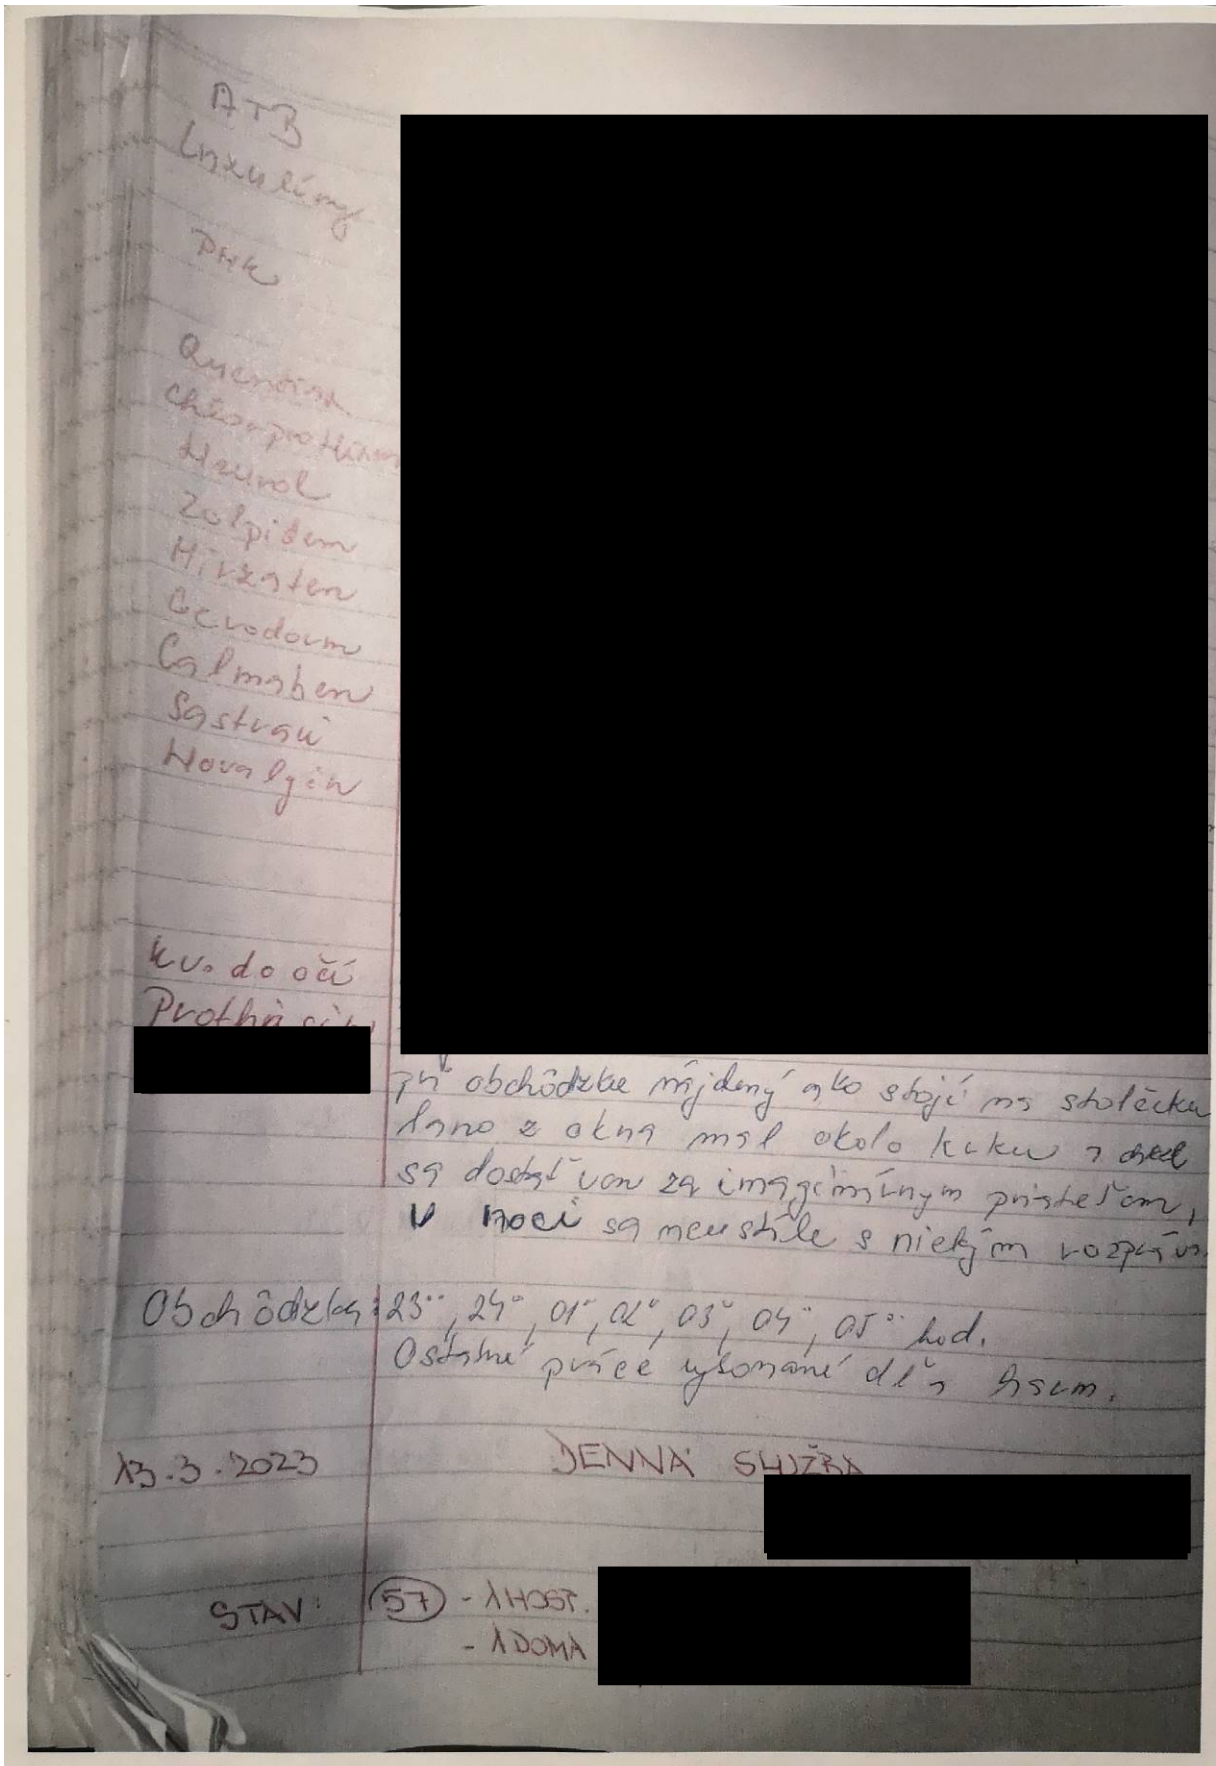 ATB
Inzulíny
PMK
Quentiax
Chlorprothixen
Neurol
Zolpidem
Mirzaten
Gerodorm
Calmaben
Sastravi
Novalgin
kv. do očí
Prothazin
pri obchôdzke nájdený ako stojí na stolčeku
lano z okna mal okolo krku a chcel
sa dostať von za imaginárnym priateľom,
V noci sa neustále s niekým rozpráva
Obchôdzka: 23°°, 24°, 01°, 02°, 03°, 04°, 05°° hod.
Ostatné práce vykonané dľa harm.
13.3.2023 DENNÁ SLUŽBA
STAV: 57 - 1 HOSP.
- 1 DOMA